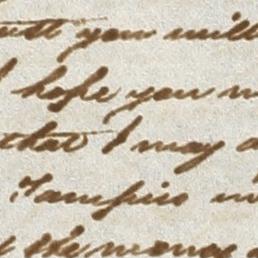 you will
hope you
that I may
Tampico
the money